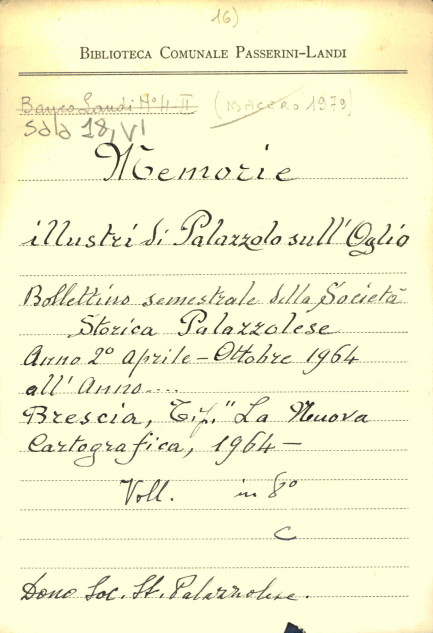 16)
BIBLIOTECA COMUNALE PASSERINI-LANDI
Banco Landi Nº 4-II (MACERO 1979)
Sala 18, VI
Memorie
illustri di Palazzolo sull'Oglio
Bollettino semestrale della Società
Storica Palazzolese
Anno 2º aprile - Ottobre 1964
all'Anno....
Brescia, Tip. "La Nuova
Cartografica, 1964 -
Voll. in 8º
C
Dono Soc. St. Palazzolese.